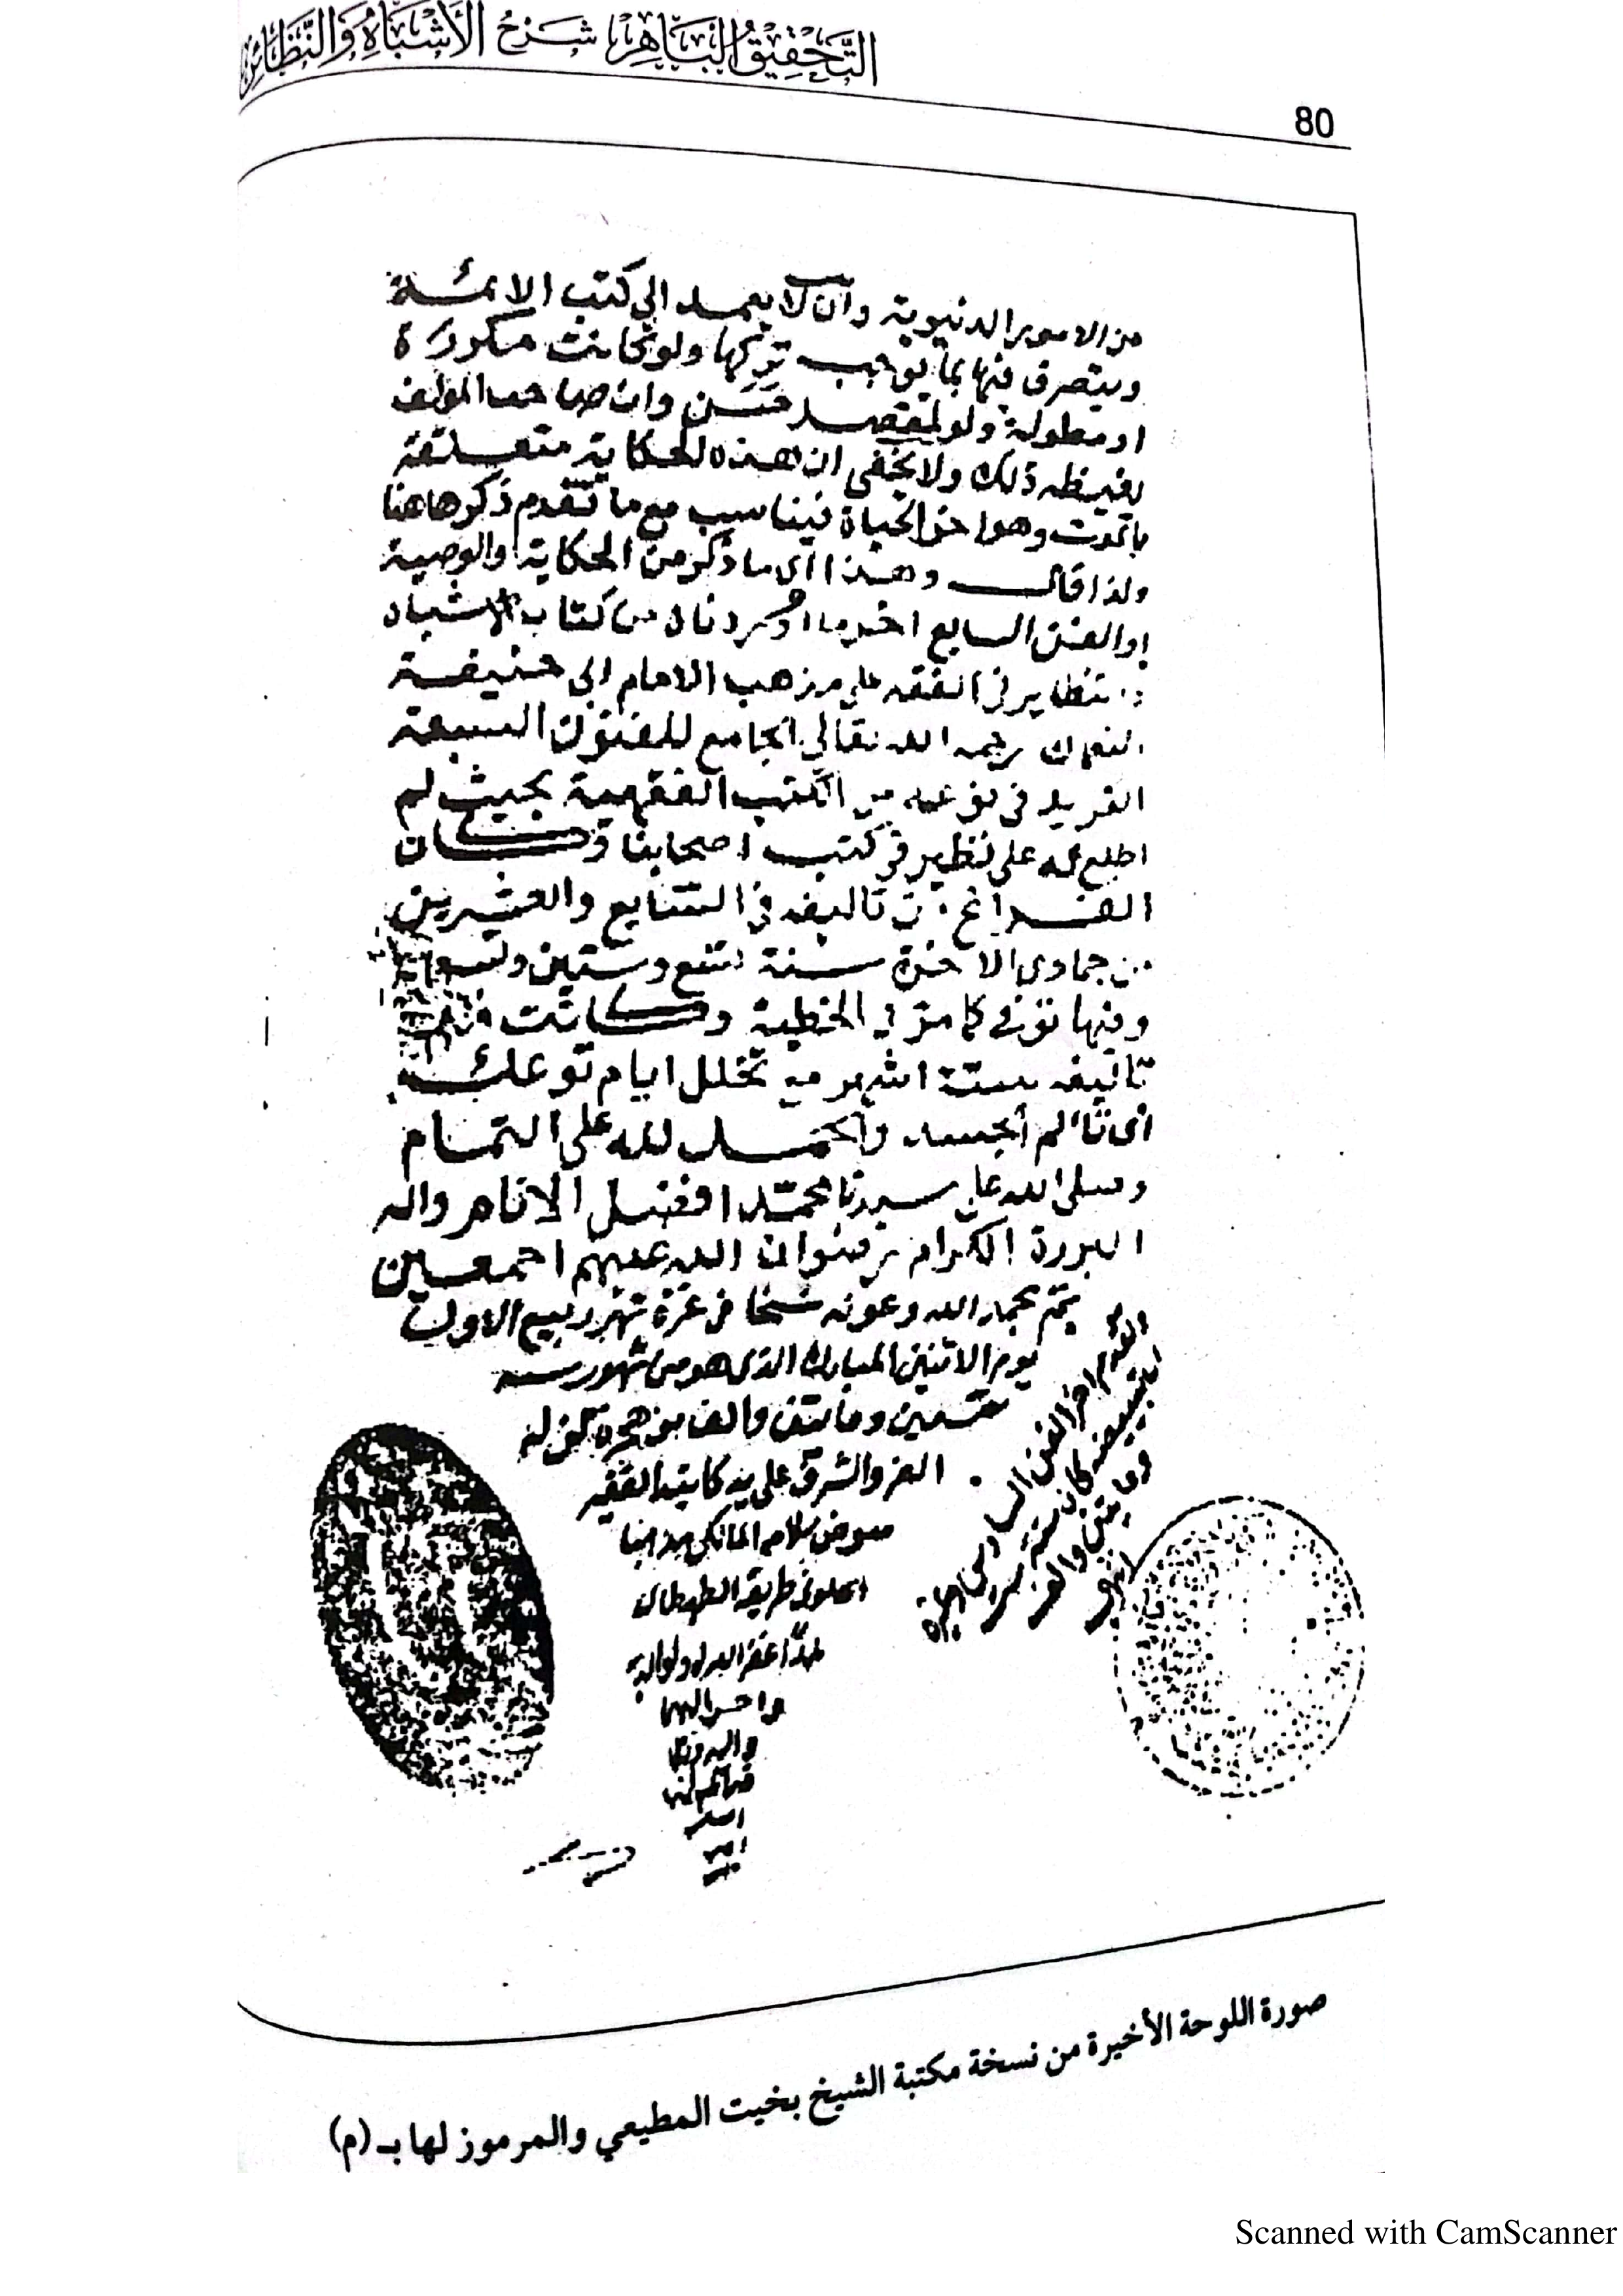 التَّحْقِيقُ البَاهِرُ شَرْحُ الأَشْبَاهِ وَالنَّظَائِرِ
80
من الامور الدنيوية وان لا يعمد الى كتب الائمة
ويتصرف فيها بما يوجب تركها ولو كانت مكررة
او مطولة ولو لمقصد حَسَن وان صاحب المؤلف
يغيظه ذلك ولا يخفى ان هذه الحكاية متعلقة
بالموت وهو اخو الحياة فيناسب مع ما تقدم ذكرها هنا
ولذا قال وهذا اى ما ذكر من الحكاية والوصية
والفن السابع اخر ما اوردناه من كتاب الاشباه
والنظاير فى الفقه على مذهب الامام ابى حنيفة
النعمان رحمه الله تعالى الجامع للفنون السبعة
الفريد فى نوعه من الكتب الفقهية بحيث لم
اطلع له على نظير فى كتب اصحابنا وكان
الفراغ من تاليفه فى السابع والعشرين
من جمادى الاخرة سنة تسع وستين وتسعماية
وفيها توفى كما مر فى الخطبة وكانت مدة
تاليفه ستة اشهر مع تخلل ايام توعك
اى تألم الجسد والحمد لله على التمام
وصلى الله على سيدنا محمد افضل الانام واله
البررة الكرام رضوان الله عليهم اجمعين
تم بحمد الله وعونه نسخا فى غرة شهر ربيع الاول
يوم الاثنين المبارك الذى هو من شهور سنة
خمسين ومائتين والف من هجرة من له
العز والشرف على يد كاتبه الفقير
عوض سلامه المالكى مذهبا
الخلوتى طريقة
بلدًا غفر الله له ولوالديه
واحسن اليهما
واليه
امين
صورة اللوحة الأخيرة من نسخة مكتبة الشيخ بخيت المطيعي والمرموز لها بـ (م)
Scanned with CamScanner